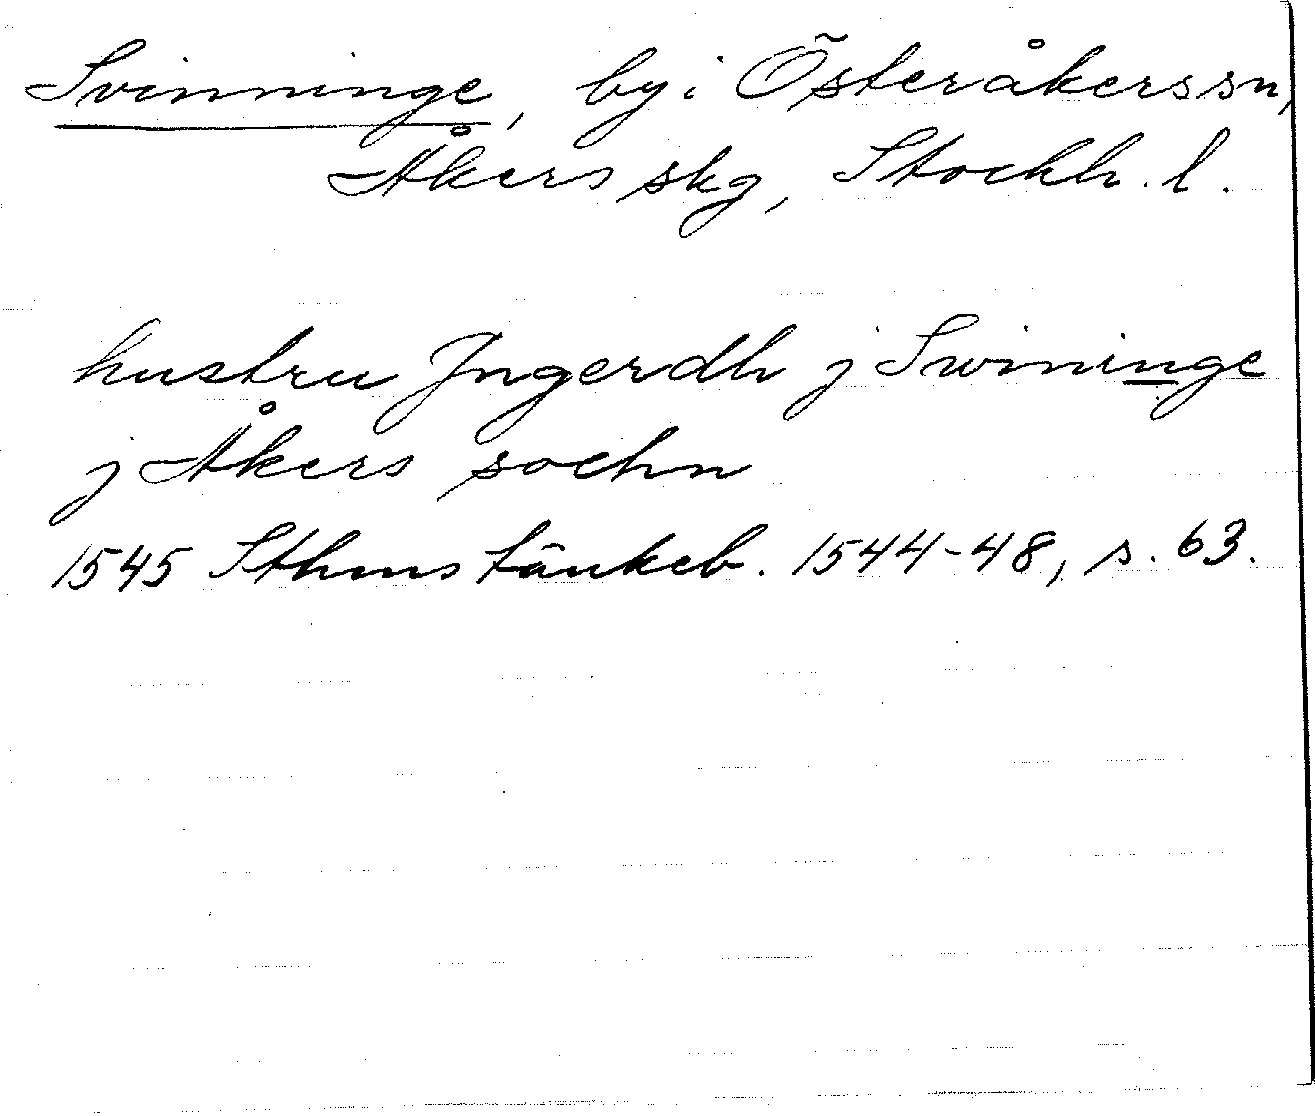 Svinninge, by i Österåkers sn,
Åkers skg, Stockh. l.
hustru Jngerdh j Swininge
j Åkers sochn
1545 Sthms tänkeb. 1544-48, s. 63.